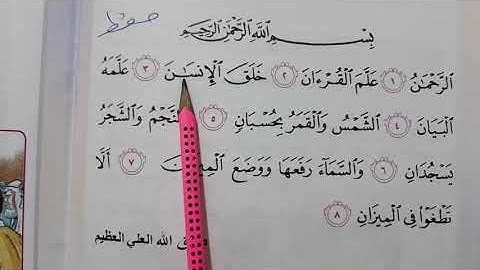 بِسْمِ ٱللَّهِ ٱلرَّحْمَٰنِ ٱلرَّحِيمِ
ٱلرَّحْمَٰنُ ١ عَلَّمَ ٱلْقُرْءَانَ ٢ خَلَقَ ٱلْإِنسَٰنَ ٣ عَلَّمَهُ
ٱلْبَيَانَ ٤ ٱلشَّمْسُ وَٱلْقَمَرُ بِحُسْبَانٍ ٥ ٱلنَّجْمُ وَٱلشَّجَرُ
يَسْجُدَانِ ٦ وَٱلسَّمَآءَ رَفَعَهَا وَوَضَعَ ٱلْمِيزَانَ ٧ أَلَّا
تَطْغَوْا۟ فِى ٱلْمِيزَانِ ٨
الله العلي العظيم